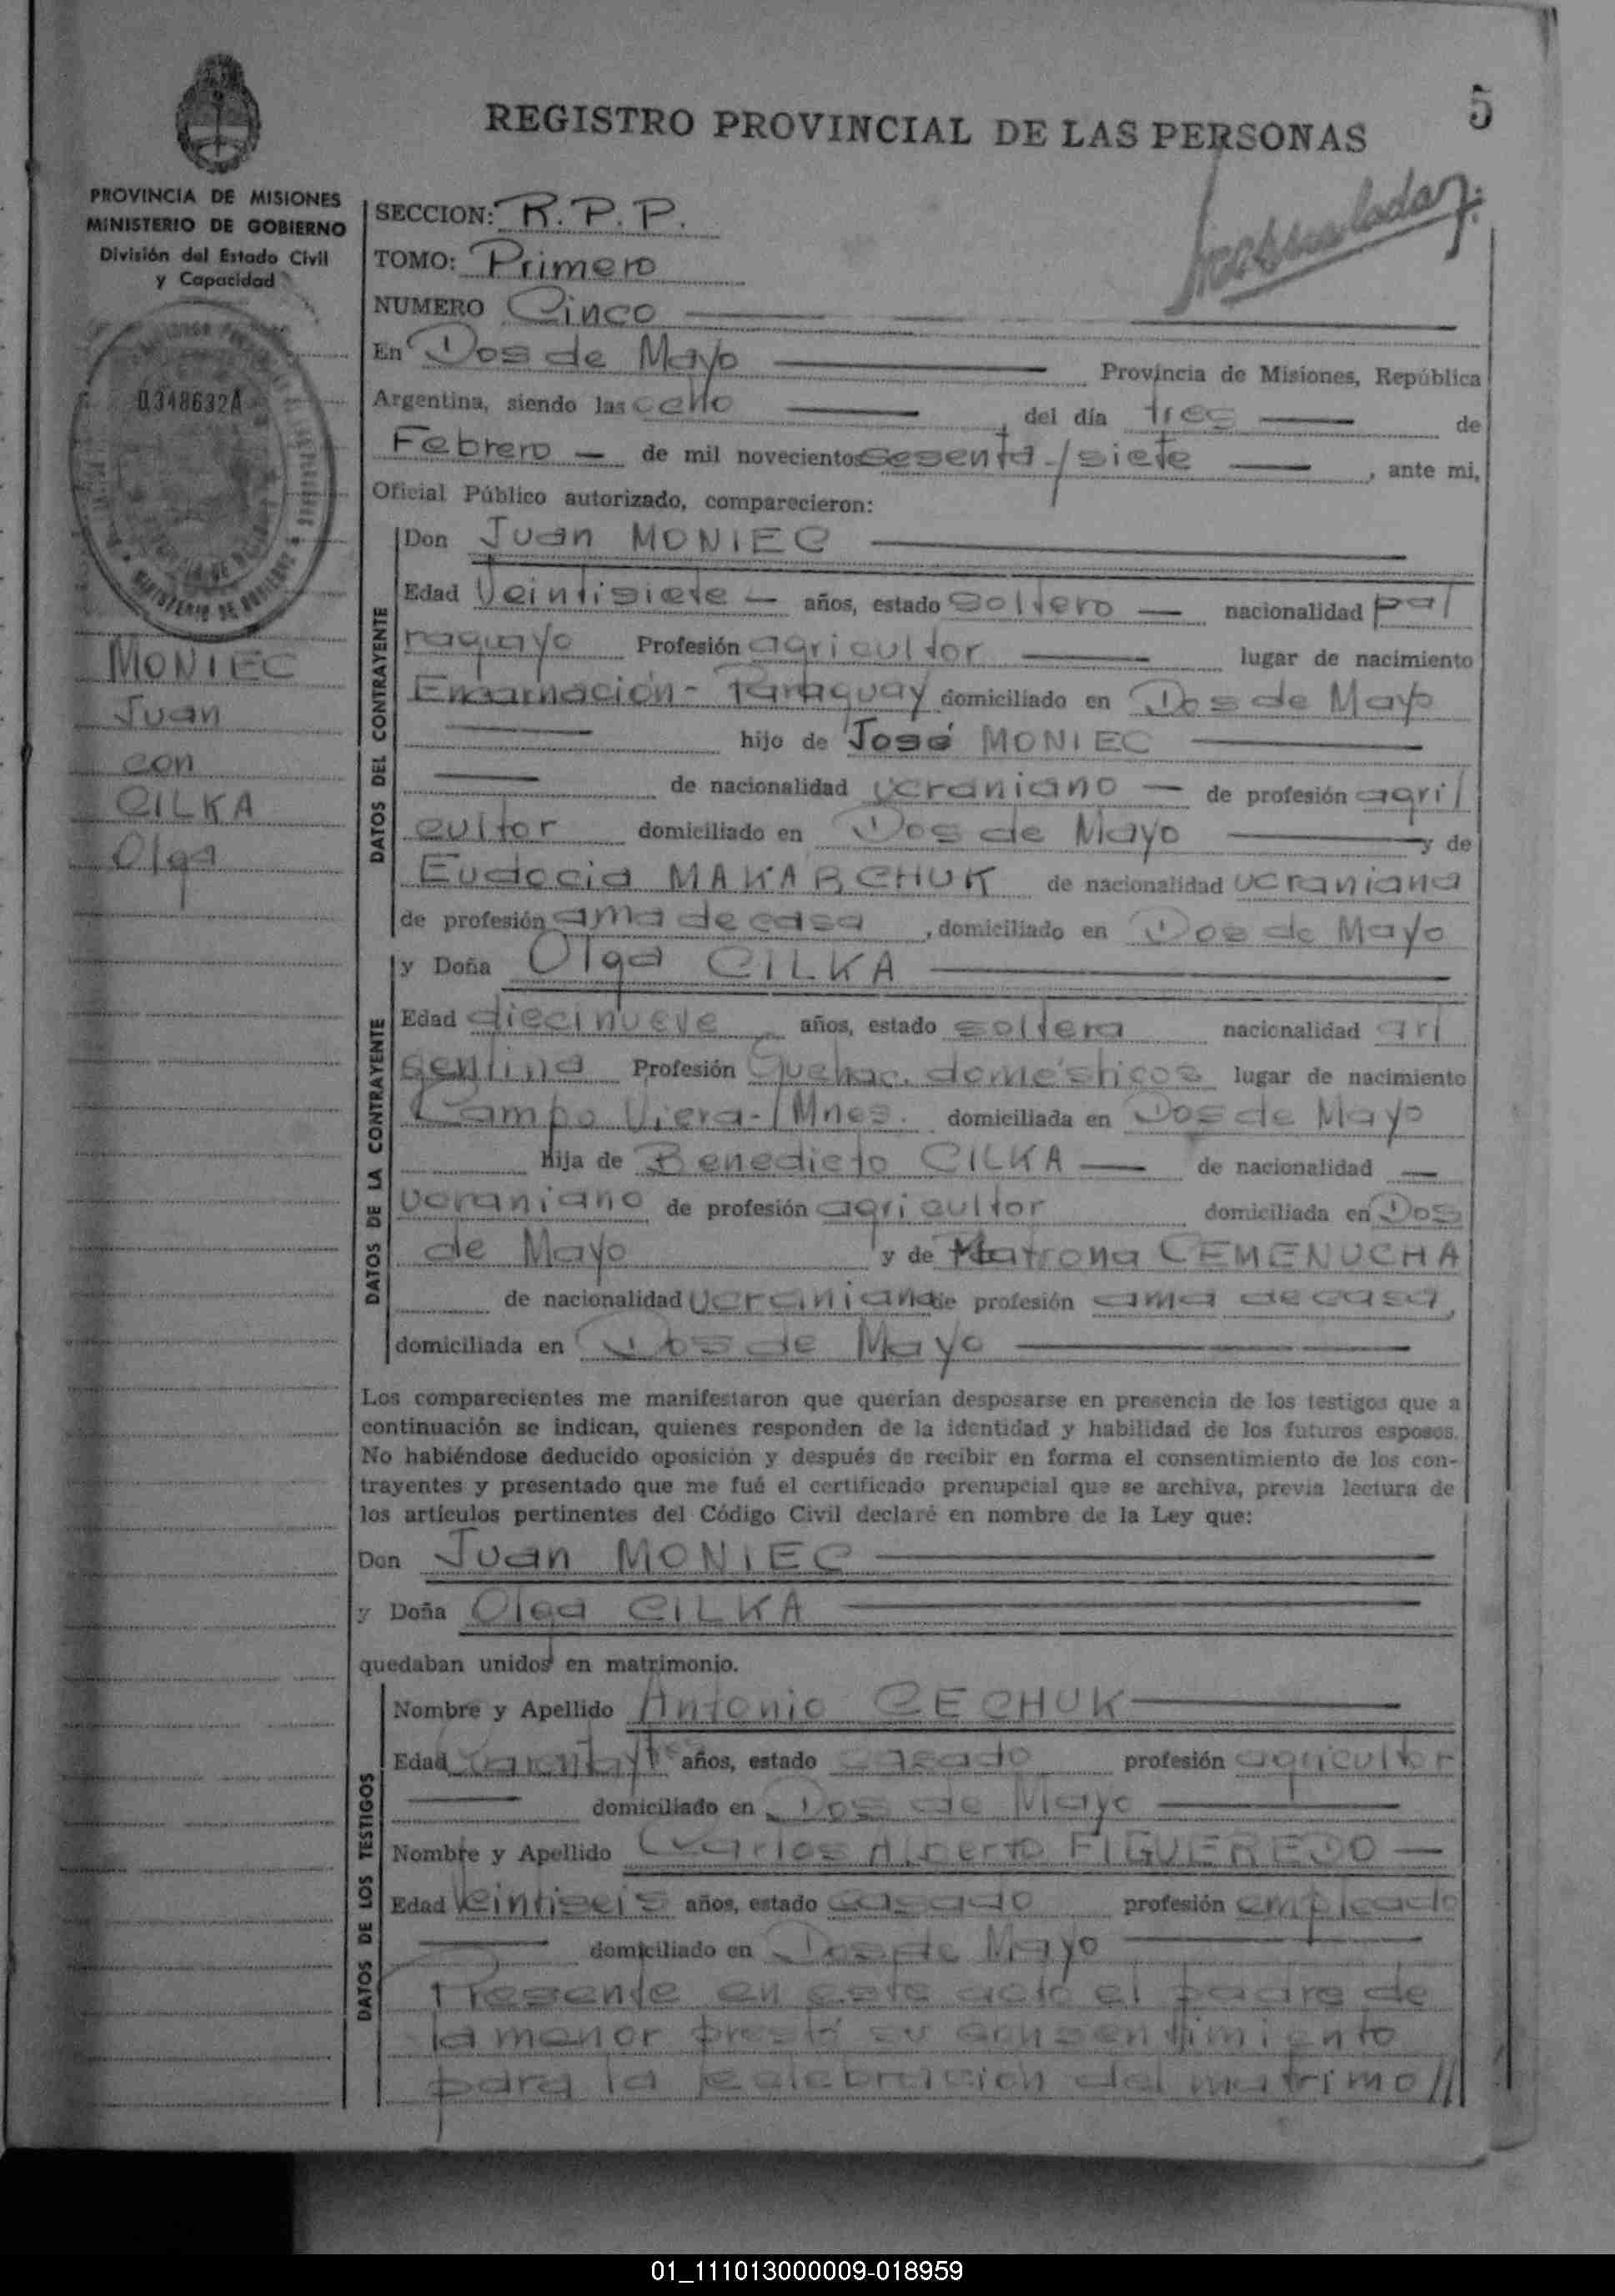 5
REGISTRO PROVINCIAL DE LAS PERSONAS
PROVINCIA DE MISIONES
MINISTERIO DE GOBIERNO
División del Estado Civil
y Capacidad
0348632A
MONIEC
Juan
con
CILKA
Olga
SECCION: R.P.P.
TOMO: Primero
NUMERO Cinco
En Dos de Mayo Provincia de Misiones, República
Argentina, siendo las ocho del día tres de
Febrero de mil novecientos sesenta/siete, ante mi,
Oficial Público autorizado, comparecieron:
DATOS DEL CONTRAYENTE
Don Juan MONIEC
Edad Veintisiete años, estado soltero nacionalidad pa/
raguayo Profesión agricultor lugar de nacimiento
Encarnación - Paraguay domiciliado en Dos de Mayo
hijo de José MONIEC
de nacionalidad ucraniano de profesión agri/
cultor domiciliado en Dos de Mayo y de
Eudocia MAKARCHUK de nacionalidad ucraniana
de profesión ama de casa, domiciliado en Dos de Mayo
DATOS DE LA CONTRAYENTE
y Doña Olga CILKA
Edad diecinueve años, estado soltera nacionalidad ar/
gentina Profesión Quehac. domésticos lugar de nacimiento
Campo Viera-/Mnes. domiciliada en Dos de Mayo
Hija de Benedicto CILKA de nacionalidad
ucraniano de profesión agricultor domiciliada en Dos
de Mayo y de Matrona CEMENUCHA
de nacionalidad ucraniana de profesión ama de casa,
domiciliada en Dos de Mayo
Los comparecientes me manifestaron que querían desposarse en presencia de los testigos que a
continuación se indican, quienes responden de la identidad y habilidad de los futuros esposos.
No habiéndose deducido oposición y después de recibir en forma el consentimiento de los con-
trayentes y presentado que me fué el certificado prenupcial que se archiva, previa lectura de
los artículos pertinentes del Código Civil declaré en nombre de la Ley que:
Don Juan MONIEC
y Doña Olga CILKA
quedaban unidos en matrimonio.
DATOS DE LOS TESTIGOS
Nombre y Apellido Antonio CECHUK
Edad años, estado casado profesión agricultor
domiciliado en Dos de Mayo
Nombre y Apellido Carlos Alberto FIGUEREDO
Edad Veintiseis años, estado casado profesión empleado
domiciliado en Dos de Mayo
Presente en este acto el padre de
la menor prestó su consentimiento
para la celebración del matrimo//
01_111013000009-018959